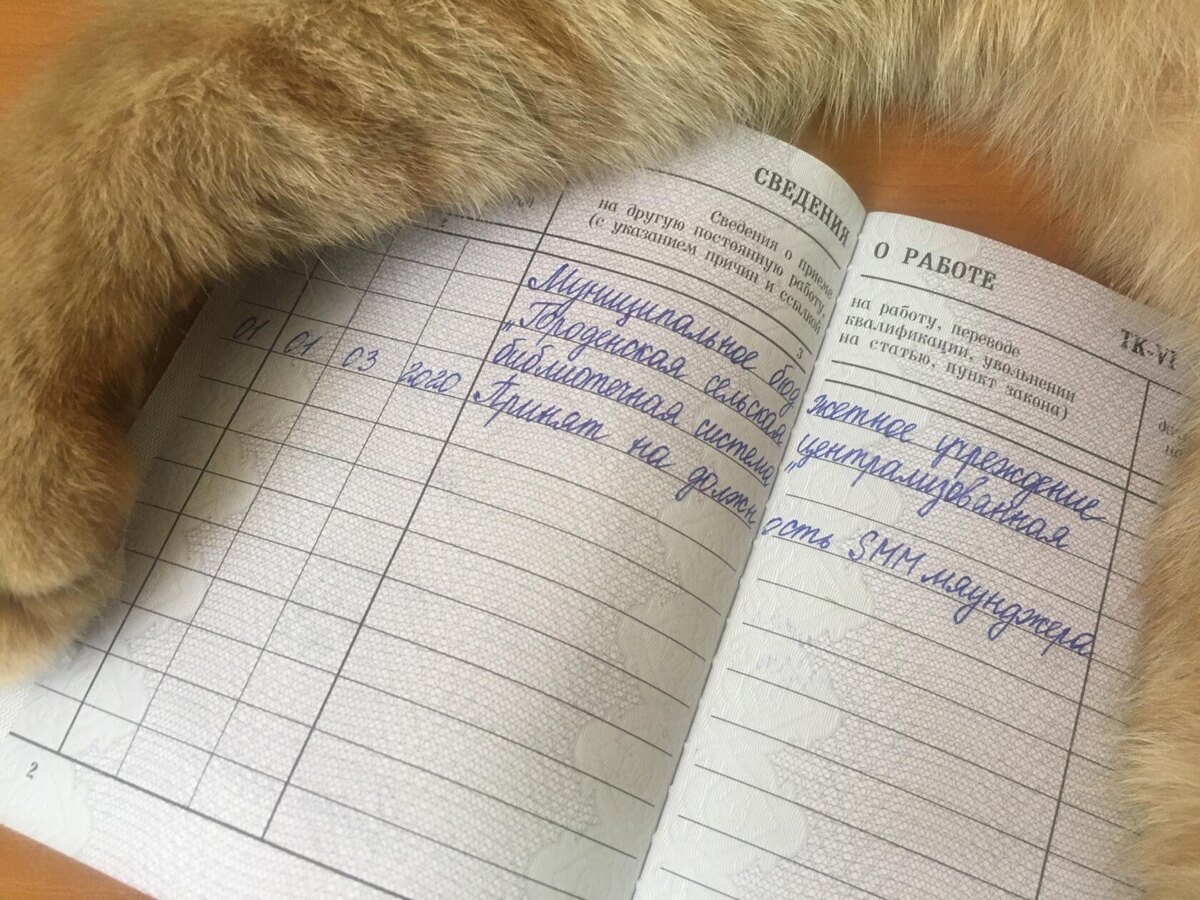 СВЕДЕНИЯ О РАБОТЕ
ТК-VI
Сведения о приеме на работу, переводе
на другую постоянную работу, квалификации, увольнении
(с указанием причин и ссылкой на статью, пункт закона)
3
Муниципальное бюджетное учреждение
„Городенская сельская централизованная
библиотечная система„
01 01 03 2020 Принят на должность SMM мяунджера
2